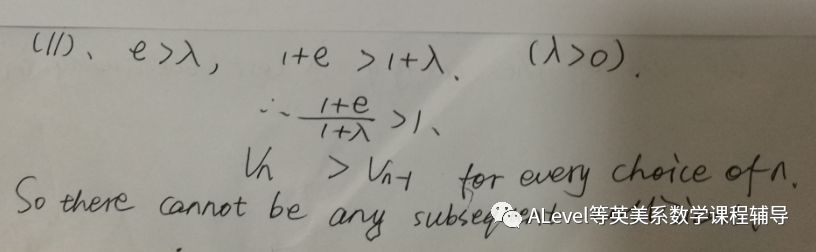 (II)、 e>λ, 1+e >1+λ. (λ>0).
∴ \frac{1+e}{1+λ} >1、
Vn > Vn-1 for every choice of n.
So there cannot be any
ALevel等英美系数学课程辅导